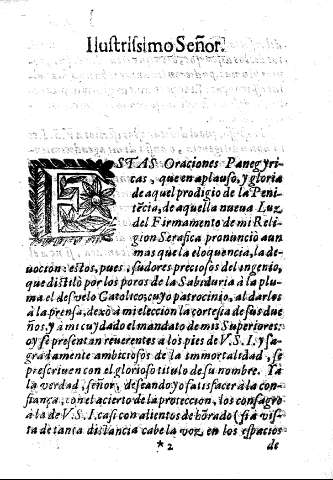 Ilustrissimo Señor.
ESTAS Oraciones Panegyri-
cas, que en aplauso, y gloria
de aquel prodigio de la Peni-
tẽcia, de aquella nueua Luz
del Firmamento de mi Reli-
gion Serafica pronunciò aun
mas que la eloquencia, la de-
uocion: estos, pues, sudores preciosos del ingenio,
que distilò por los poros de la Sabiduria à la plu-
ma el desvelo Catolico; cuyo patrocinio, al darlos
à la prensa, dexò à mi eleccion la cortesia de sus due
ños, y à mi cuydado el mandato de mis Superiores:
oy se presentan reuerentes à los pies de V.S.I. y sa-
gradamente ambiciosos de la immortalidad, se
prescriuen con el glorioso titulo de su nombre. Yà
la verdad, señor, deseando yo satisfacer à la con-
fiança, con el acierto de la proteccion, los consagro
à la de V.S.I. casi con alientos de hõrado (si à vis-
ta de tanta distancia cabe la voz, en los espacios
* 2 de